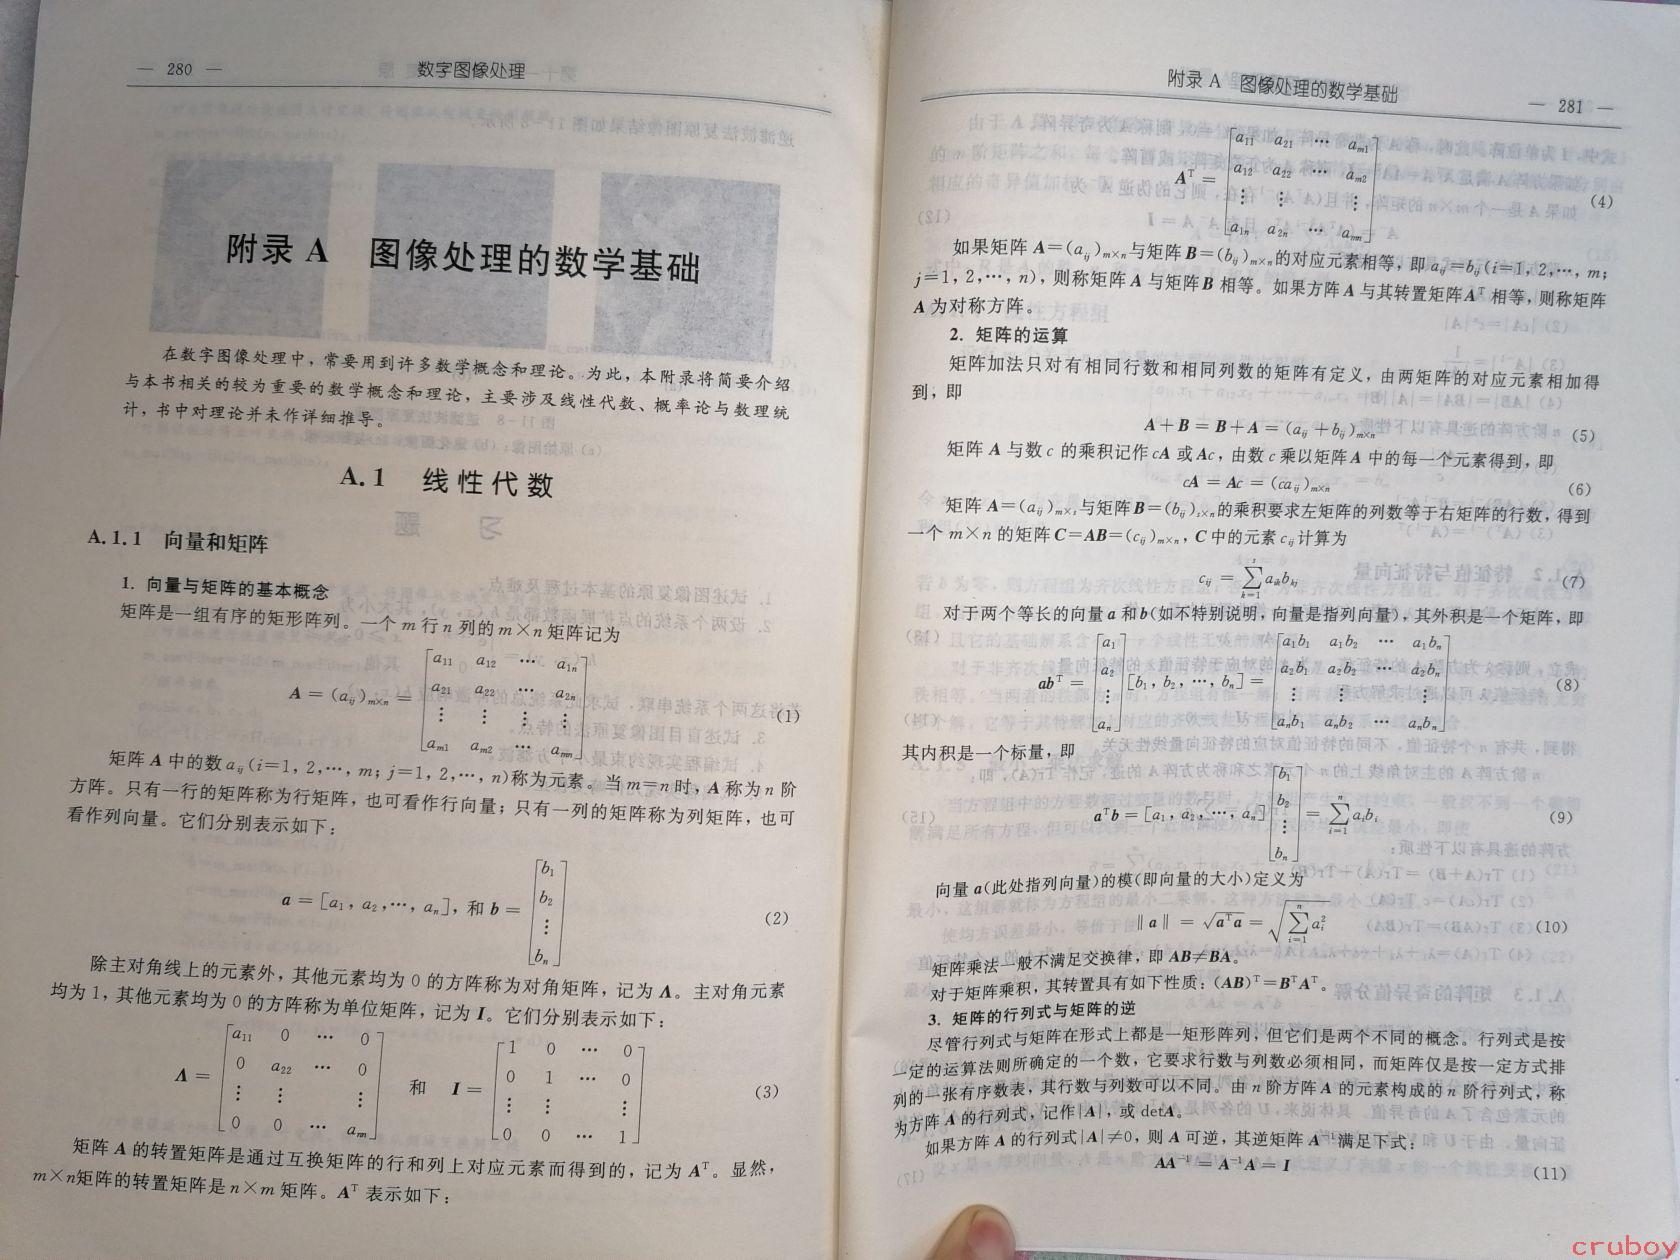 — 280 —
数字图像处理
附录 A 图像处理的数学基础
在数字图像处理中，常要用到许多数学概念和理论。为此，本附录将简要介绍
与本书相关的较为重要的数学概念和理论，主要涉及线性代数、概率论与数理统
计，书中对理论并未作详细推导。
A.1 线性代数
A.1.1 向量和矩阵
1. 向量与矩阵的基本概念
矩阵是一组有序的矩形阵列。一个 m 行 n 列的 m×n 矩阵记为
A = (aᵢⱼ)ₘ×ₙ = [a₁₁ a₁₂ ⋯ a₁ₙ; a₂₁ a₂₂ ⋯ a₂ₙ; ⋮ ⋮ ⋮ ⋮; aₘ₁ aₘ₂ ⋯ aₘₙ] (1)
矩阵 A 中的数 aᵢⱼ(i=1, 2,⋯, m; j=1, 2,⋯, n)称为元素。当 m=n 时，A 称为 n 阶
方阵。只有一行的矩阵称为行矩阵，也可看作行向量；只有一列的矩阵称为列矩阵，也可
看作列向量。它们分别表示如下：
a = [a₁, a₂,⋯, aₙ], 和 b = [b₁; b₂; ⋮; bₙ] (2)
除主对角线上的元素外，其他元素均为 0 的方阵称为对角矩阵，记为 Λ。主对角元素
均为 1，其他元素均为 0 的方阵称为单位矩阵，记为 I。它们分别表示如下：
Λ = [a₁₁ 0 ⋯ 0; 0 a₂₂ ⋯ 0; ⋮ ⋮ ⋮; 0 0 ⋯ aₙₙ] 和 I = [1 0 ⋯ 0; 0 1 ⋯ 0; ⋮ ⋮ ⋮; 0 0 ⋯ 1] (3)
矩阵 A 的转置矩阵是通过互换矩阵的行和列上对应元素而得到的，记为 Aᵀ。显然，
m×n矩阵的转置矩阵是 n×m 矩阵。Aᵀ 表示如下：
附录 A 图像处理的数学基础
— 281 —
Aᵀ = [a₁₁ a₂₁ ⋯ aₘ₁; a₁₂ a₂₂ ⋯ aₘ₂; ⋮ ⋮ ⋮; a₁ₙ a₂ₙ ⋯ aₘₙ] (4)
如果矩阵 A=(aᵢⱼ)ₘ×ₙ与矩阵 B=(bᵢⱼ)ₘ×ₙ的对应元素相等，即 aᵢⱼ=bᵢⱼ(i=1, 2,⋯, m;
j=1, 2,⋯, n)，则称矩阵 A 与矩阵 B 相等。如果方阵 A 与其转置矩阵Aᵀ 相等，则称矩阵
A 为对称方阵。
2. 矩阵的运算
矩阵加法只对有相同行数和相同列数的矩阵有定义，由两矩阵的对应元素相加得
到，即
A + B = B + A = (aᵢⱼ + bᵢⱼ)ₘ×ₙ (5)
矩阵 A 与数 c 的乘积记作 cA 或 Ac，由数 c 乘以矩阵 A 中的每一个元素得到，即
cA = Ac = (caᵢⱼ)ₘ×ₙ (6)
矩阵 A=(aᵢⱼ)ₘ×ₛ与矩阵 B=(bᵢⱼ)ₛ×ₙ的乘积要求左矩阵的列数等于右矩阵的行数，得到
一个 m×n 的矩阵 C=AB=(cᵢⱼ)ₘ×ₙ，C 中的元素 cᵢⱼ 计算为
cᵢⱼ = ∑ₖ₌₁ˢ aᵢₖbₖⱼ (7)
对于两个等长的向量 a 和 b(如不特别说明，向量是指列向量)，其外积是一个矩阵，即
abᵀ = [a₁; a₂; ⋮; aₙ][b₁, b₂, ⋯, bₙ] = [a₁b₁ a₁b₂ ⋯ a₁bₙ; a₂b₁ a₂b₂ ⋯ a₂bₙ; ⋮ ⋮ ⋮; aₙb₁ aₙb₂ ⋯ aₙbₙ] (8)
其内积是一个标量，即
aᵀb = [a₁, a₂, ⋯, aₙ][b₁; b₂; ⋮; bₙ] = ∑ᵢ₌₁ⁿ aᵢbᵢ (9)
向量 a(此处指列向量)的模(即向量的大小)定义为
‖a‖ = √(aᵀa) = √(∑ᵢ₌₁ⁿ aᵢ²) (10)
矩阵乘法一般不满足交换律，即 AB≠BA。
对于矩阵乘积，其转置具有如下性质：(AB)ᵀ=BᵀAᵀ。
3. 矩阵的行列式与矩阵的逆
尽管行列式与矩阵在形式上都是一矩形阵列，但它们是两个不同的概念。行列式是按
一定的运算法则所确定的一个数，它要求行数与列数必须相同，而矩阵仅是按一定方式排
列的一张有序数表，其行数与列数可以不同。由 n 阶方阵 A 的元素构成的 n 阶行列式，称
为方阵 A 的行列式，记作|A|，或 detA。
如果方阵 A 的行列式|A|≠0，则 A 可逆，其逆矩阵 A⁻¹满足下式：
AA⁻¹ = A⁻¹A = I (11)
cruboy